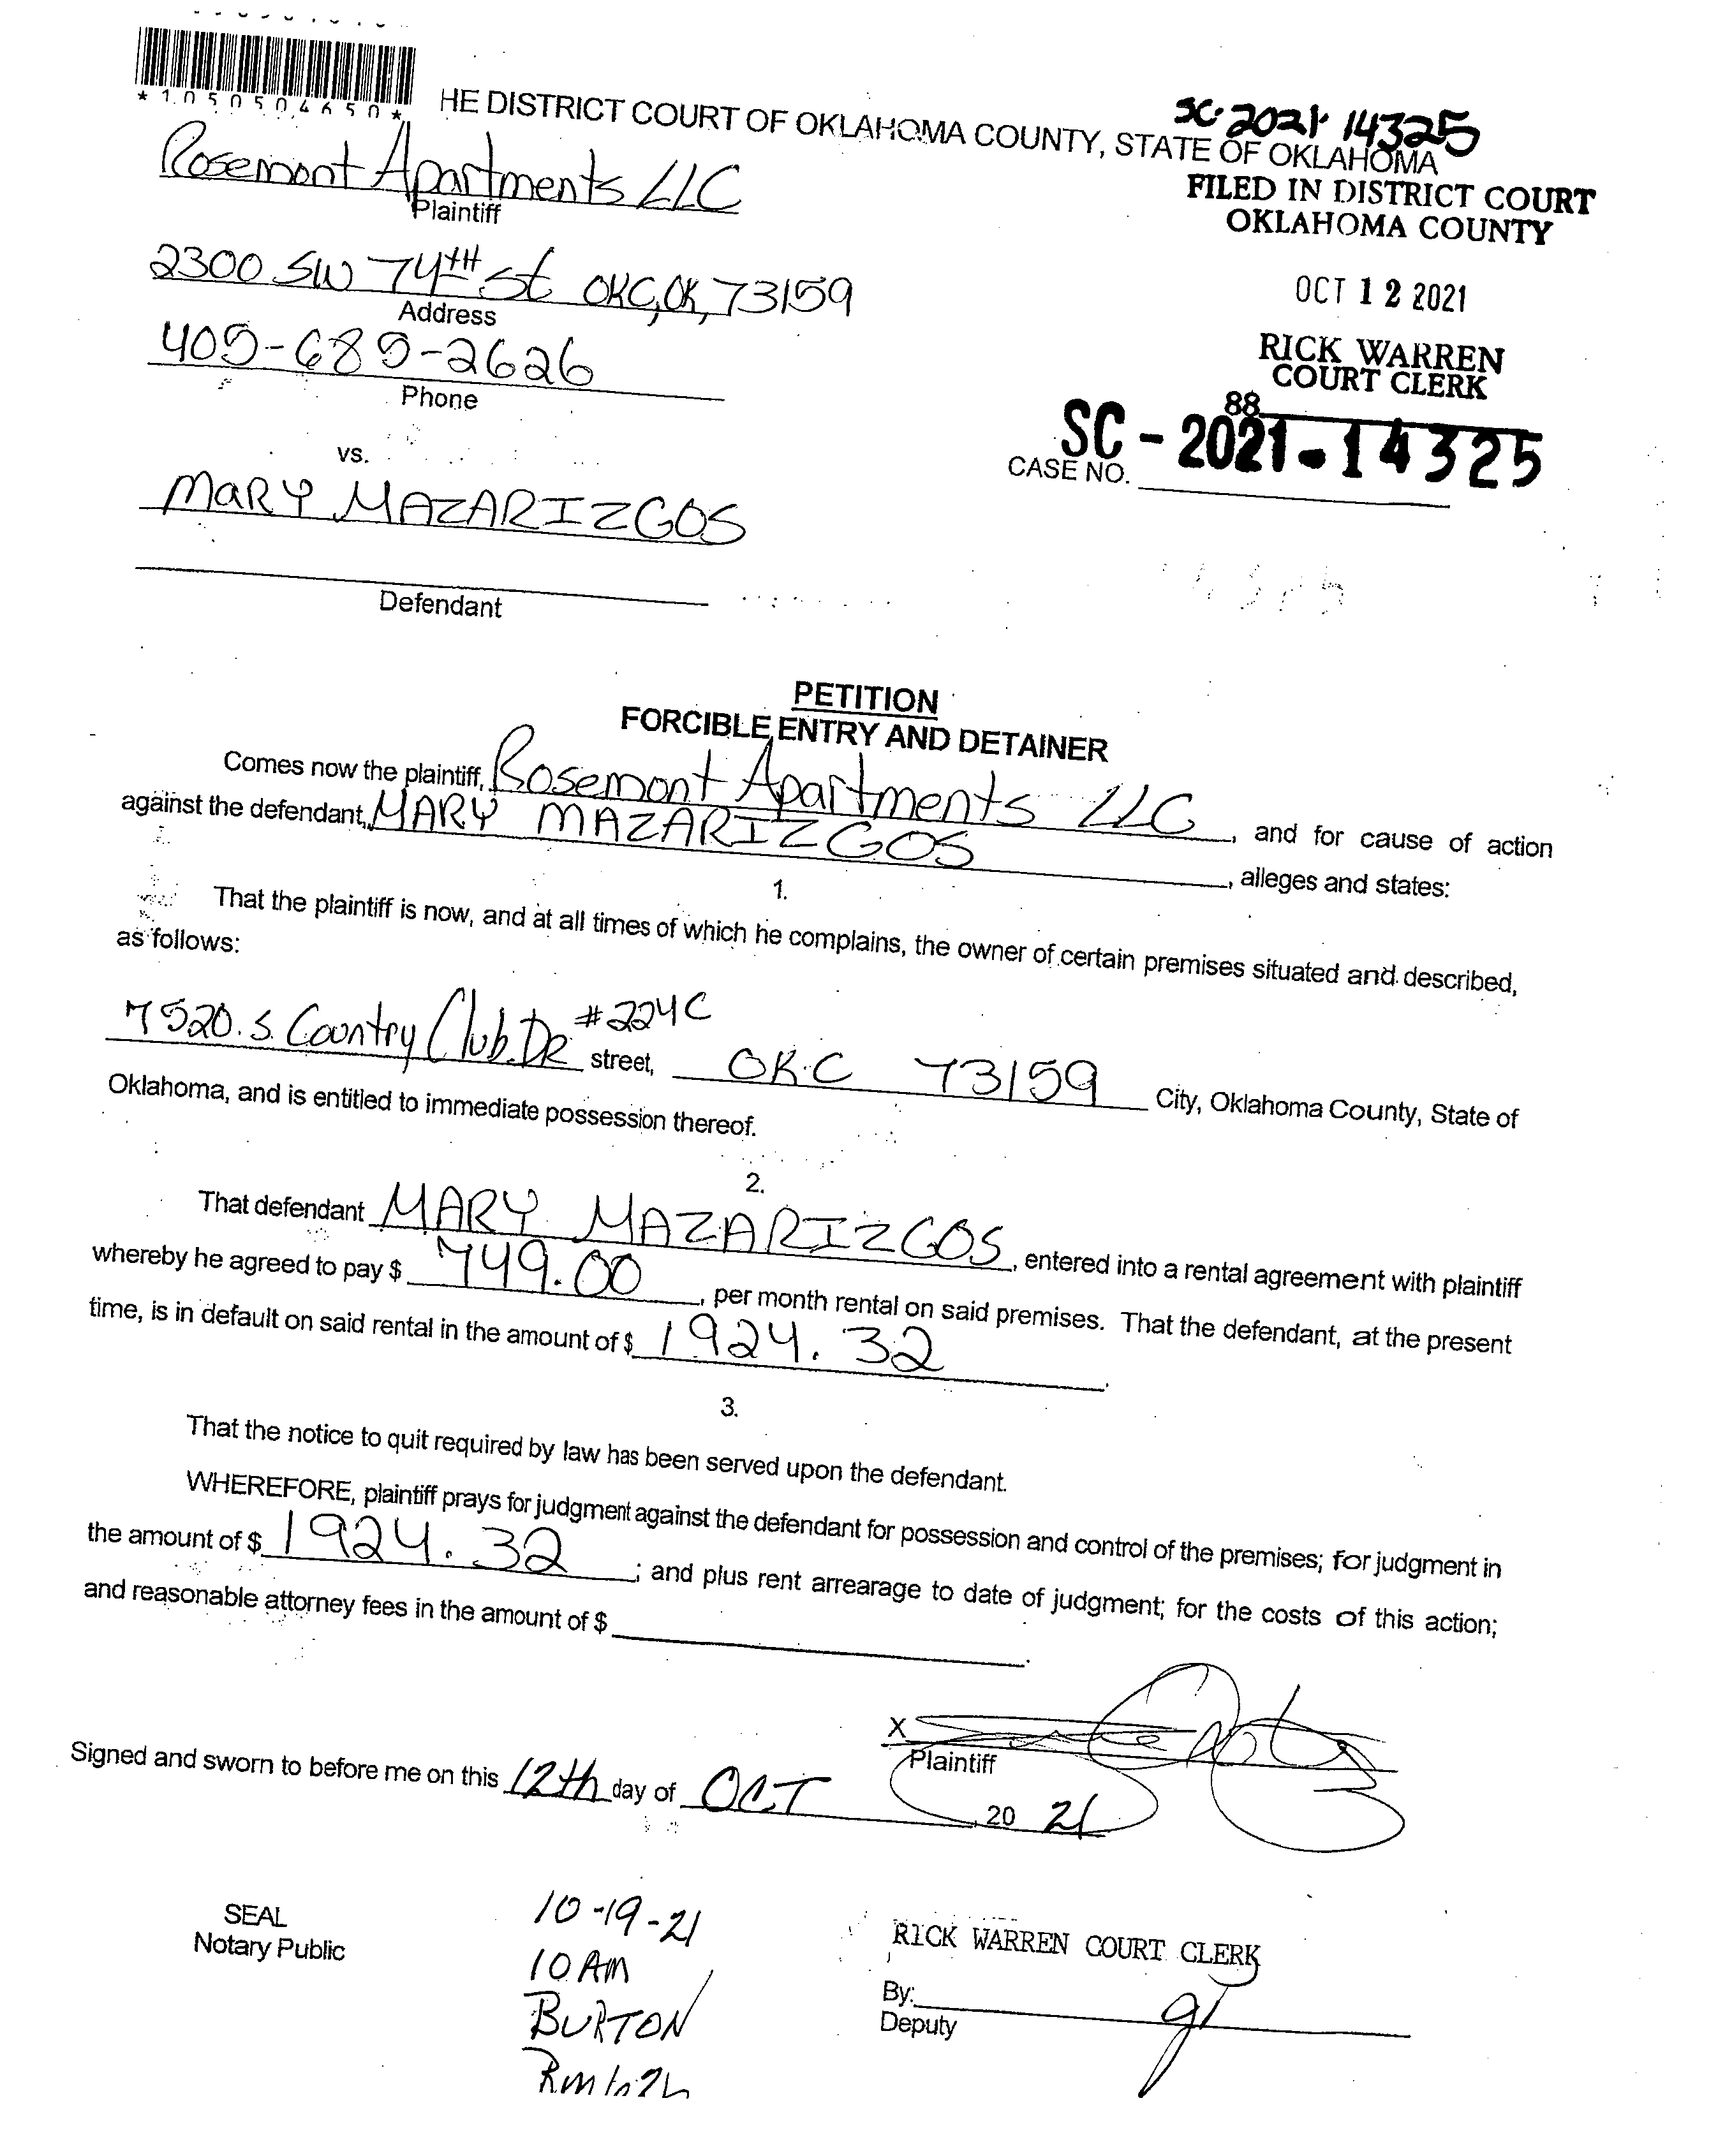 *1050504650*
HE DISTRICT COURT OF OKLAHOMA COUNTY, STATE OF OKLAHOMA
SC-2021-14325
Rosemont Apartments LLC
Plaintiff
FILED IN DISTRICT COURT
OKLAHOMA COUNTY
2300 SW 74TH St OKC, OK, 73159
Address
OCT 12 2021
405-685-2626
Phone
RICK WARREN
COURT CLERK
88
SC-2021-14325
CASE NO.
vs.
MARY MAZARIZGOS
Defendant
PETITION
FORCIBLE ENTRY AND DETAINER
Comes now the plaintiff, Rosemont Apartments LLC, and for cause of action
against the defendant, MARY MAZARIZGOS, alleges and states:
1.
That the plaintiff is now, and at all times of which he complains, the owner of certain premises situated and described,
as follows:
7520. S. Country Club. DR #224C street, OKC 73159 City, Oklahoma County, State of
Oklahoma, and is entitled to immediate possession thereof.
2.
That defendant MARY MAZARIZGOS, entered into a rental agreement with plaintiff
whereby he agreed to pay $ 749.00, per month rental on said premises. That the defendant, at the present
time, is in default on said rental in the amount of $ 1924.32.
3.
That the notice to quit required by law has been served upon the defendant.
WHEREFORE, plaintiff prays for judgment against the defendant for possession and control of the premises; for judgment in
the amount of $ 1924.32; and plus rent arrearage to date of judgment; for the costs of this action;
and reasonable attorney fees in the amount of $ .
X
Plaintiff
Signed and sworn to before me on this 12th day of OCT, 20 21
SEAL
Notary Public
10-19-21
10 AM
BURTON
RICK WARREN COURT CLERK
By:
Deputy